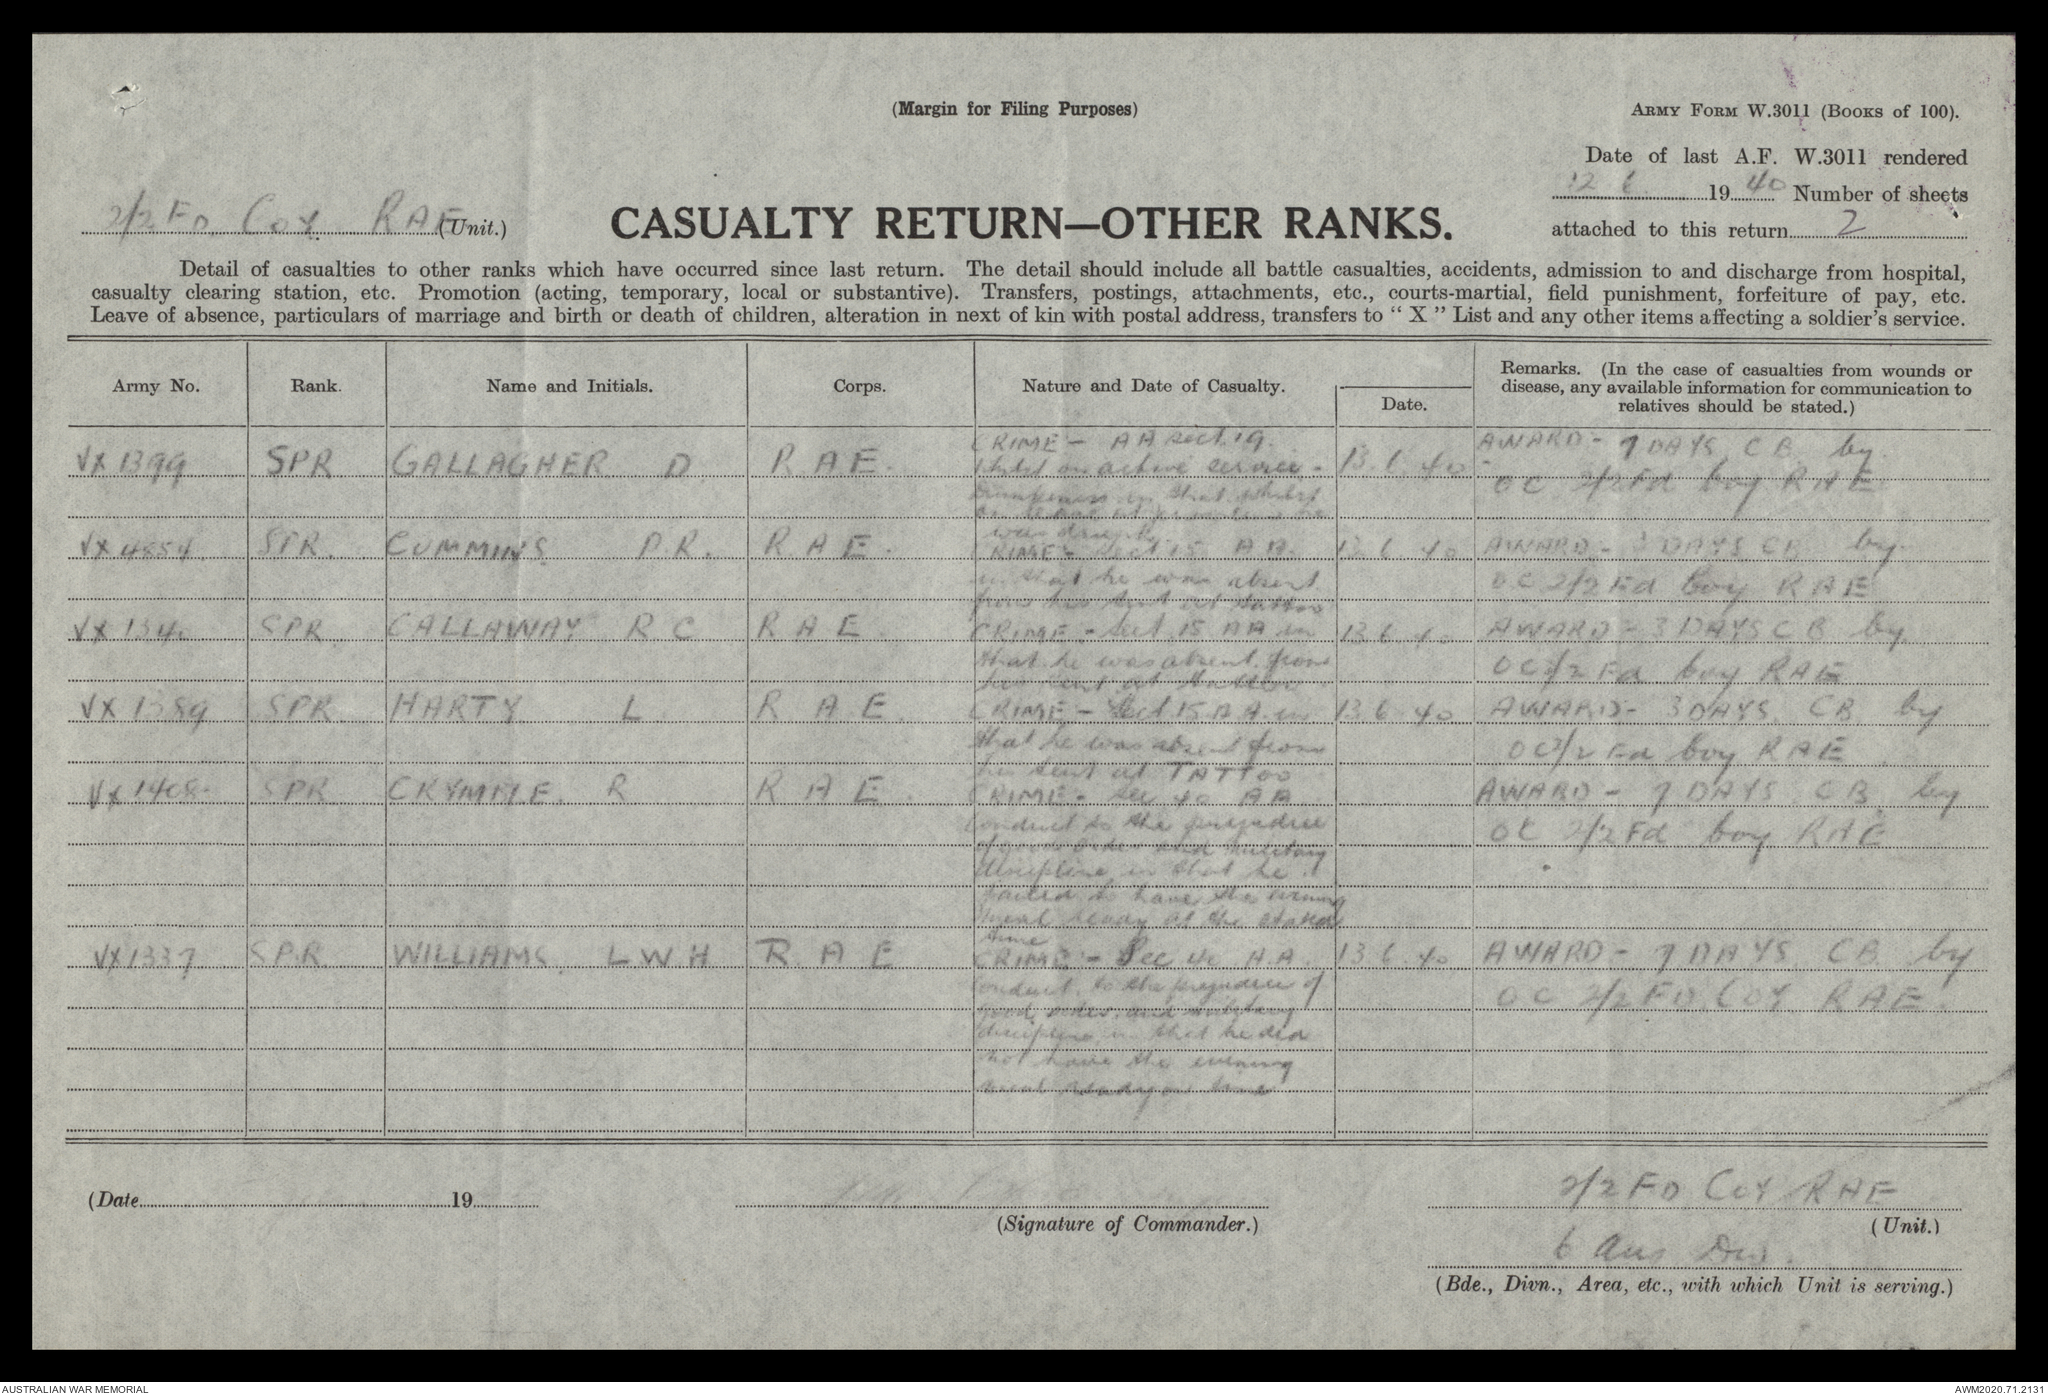 (Margin for Filing Purposes)
ARMY FORM W.3011 (BOOKS of 100).
Date of last A.F. W.3011 rendered
12 6 19 40 Number of sheets
attached to this return 2
2/2 FD COY RAE (Unit.)
CASUALTY RETURN—OTHER RANKS.
Detail of casualties to other ranks which have occurred since last return. The detail should include all battle casualties, accidents, admission to and discharge from hospital,
casualty clearing station, etc. Promotion (acting, temporary, local or substantive). Transfers, postings, attachments, etc., courts-martial, field punishment, forfeiture of pay, etc.
Leave of absence, particulars of marriage and birth or death of children, alteration in next of kin with postal address, transfers to " X " List and any other items affecting a soldier's service.
Army No. Rank. Name and Initials. Corps. Nature and Date of Casualty. Date. Remarks. (In the case of casualties from wounds or
disease, any available information for communication to
relatives should be stated.)
VX 1399 SPR GALLAGHER D RAE. CRIME - AA sect. 19. 13.6.40 AWARD - 7 DAYS CB by
Whilst on active service - OC 2/2 Fd Coy RAE
Drunkenness in that whilst
on leave at he
was drunk
VX 4854 SPR. CUMMINS P.R. RAE. CRIME - Sect 15 AA. 13.6.40 AWARD - 3 DAYS CB by
in that he was absent OC 2/2 Fd Coy RAE
from his tent at tattoo
VX 134 SPR CALLAWAY R C RAE CRIME - Sect 15 AA in 13.6.40 AWARD - 3 DAYS CB by
that he was absent from OC 2/2 Fd Coy RAE
his tent at tattoo
VX 1389 SPR HARTY L RAE CRIME - Sect 15 AA in 13.6.40 AWARD - 3 DAYS CB by
that he was absent from OC 2/2 Fd Coy RAE
his tent at TATTOO
VX 1408 SPR CRYMBLE R RAE. CRIME - Sec 40 AA AWARD - 7 DAYS CB by
Conduct to the prejudice OC 2/2 Fd Coy RAE
of good order and military
discipline in that he
failed to have the evening
meal ready at the stated
time
VX 1337 SPR WILLIAMS LWH RAE CRIME - Sec 40 A.A. 13.6.40 AWARD - 7 DAYS CB by
Conduct to the prejudice of OC 2/2 FD COY RAE.
good order and military
discipline in that he did
not have the evening
meal ready on time
(Date 19
(Signature of Commander.)
2/2 FD COY RAE
(Unit.)
6 Aus Div.
(Bde., Divn., Area, etc., with which Unit is serving.)
AUSTRALIAN WAR MEMORIAL
AWM2020.71.2131